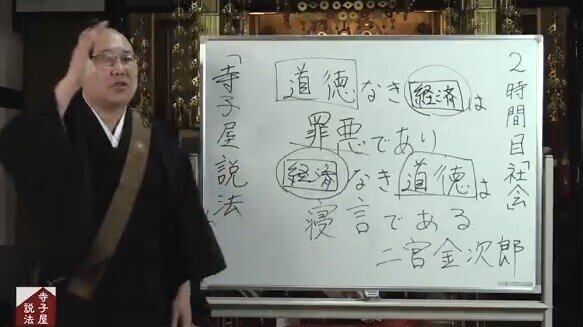 ２時間目「社会」
道徳なき経済は
罪悪であり
経済なき道徳は
寝言である
二宮金次郎
「寺子屋説法」
寺子屋
説法